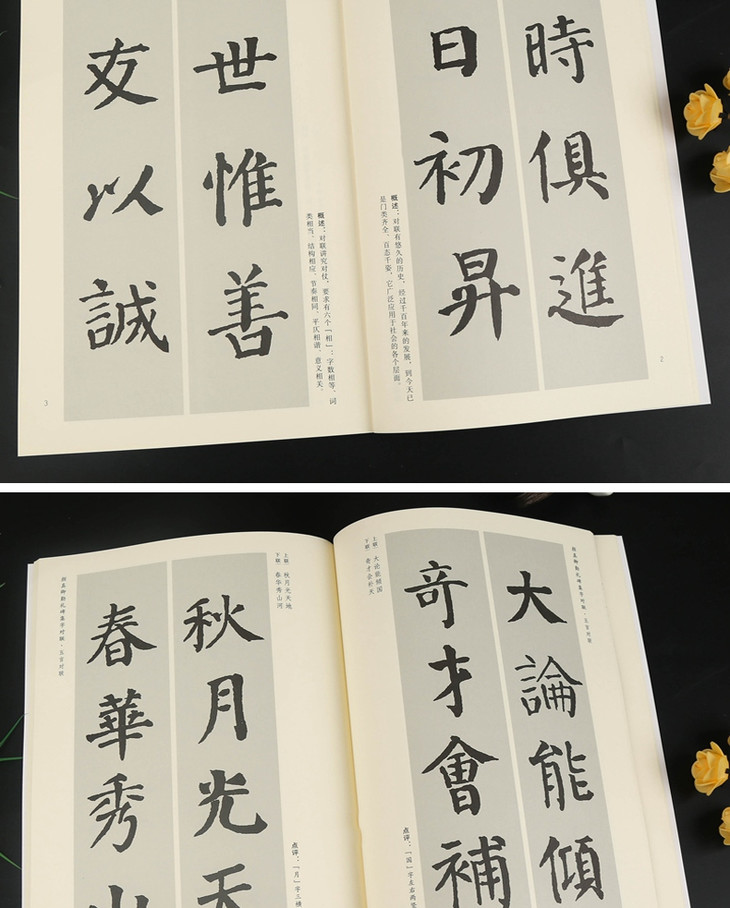 時俱進
日初昇
概述：对联有悠久的历史，经过千百年来的发展，到今天已
是门类齐全、百态千姿，它广泛应用于社会的各个层面。
2
世惟善
友以誠
概述：对联讲究对仗，要求有六个「相」：字数相等、词
类相当、结构相应、节奏相同、平仄相谐、意义相关。
3
颜真卿勤礼碑集字对联·五言对联
大論能傾
奇才會補
上联 大论能倾国
下联 奇才会补天
点评：「国」字左右两竖
上联 秋月光天地
下联 春华秀山河
秋月光天
春華秀山
点评：「月」字三横
颜真卿勤礼碑集字对联·五言对联